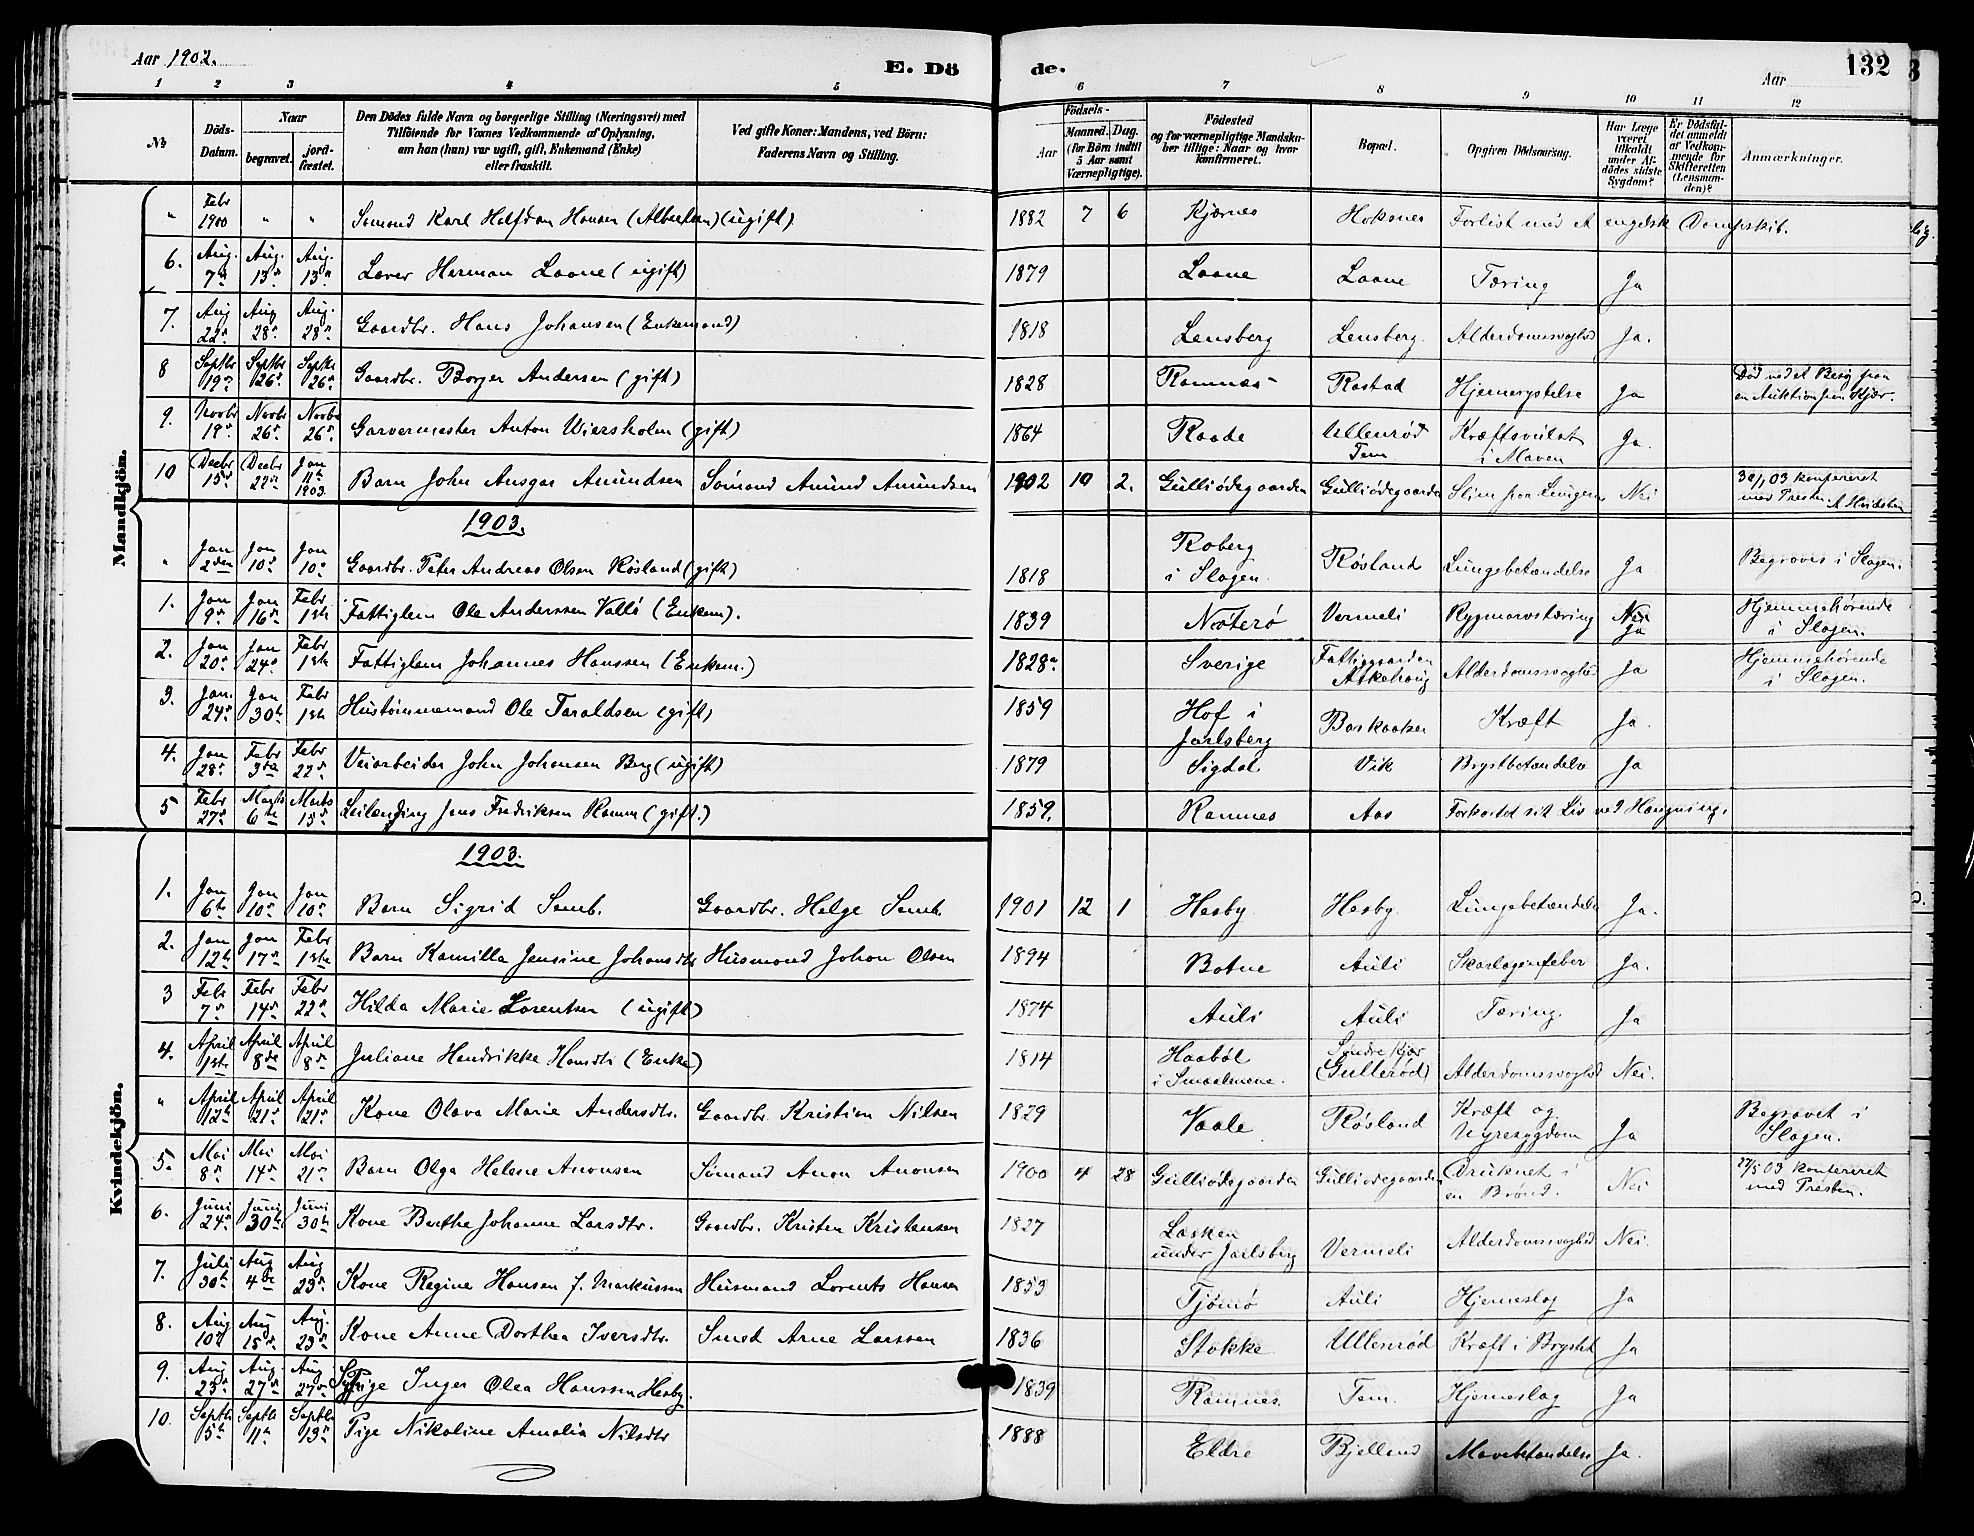 Aar 1902.
E. Dö
de.
Aar
132
1 2 3 4 5 6 7 8 9 10 11 12
№
Döds-Datum.
Naar
begravet.
jord-fæstet.
Den Dödes fulde Navn og borgerlige Stilling (Næringsvei) med
Tilföiende for Voxnes Vedkommende af Oplysning,
om han (hun) var ugift, gift, Enkemand (Enke)
eller fraskilt.
Ved gifte Koner: Mandens, ved Börn:
Faderens Navn og Stilling.
Födsels-
Aar
Maaned. Dag.
(for Börn indtil
5 Aar samt
Værnepligtige).
Födested
og for værnepligtige Mandska-
ber tillige: Naar og hvor
konfirmeret.
Bopæl.
Opgiven Dödsaarsag.
Har Læge
været
tilkaldt
under Af-
dödes sidste
Sygdom?
Er Dödsfal-
det anmeldt
af Vedkom-
mende for
Skifteretten
(Lensman-
den)?
Anmærkninger.
Mandkjön.
" Febr 1900 " " Sømand Karl Halfdan Hansen (Albertsen) (ugift) 1882 7 6 Kjærnes Hoksnes Forlist med et engelsk Dampskib.
6. Aug. 7de Aug. 13de Aug. 13de Lærer Herman Laane (ugift) 1879 Laane Laane Tæring Ja
7. Aug 22de Aug 28de Aug. 28de Gaardbr. Hans Johansen (Enkemand) 1818 Lensberg Lensberg. Alderdomssvaghed Ja.
8 Septbr 19de Septbr 26de Septbr 26de Gaardbr. Borger Andersen (gift) 1828 Ramnæs Rastad Hjernerystelse Ja Død ved et Besøg paa en Auktion paa Kjær.
9. Novbr 19de Novbr 26de Novbr 26de Garvermester Anton Wiersholm (gift) 1864 Raade Ullenrød Tem Kræftsvulst i Maven Ja.
10 Decbr 15de Decbr 22de Jan 11te 1903. Barn John Ansgar Amundsen Sømand Amund Amundsen 1902 10 2. Gulliødegaarden Gulliødegaarden Slim paa Lungerne Nei 30/1 03 konfereret med Presten A Hvidsten
1903.
" Jan 2den Jan 10de Jan 10de Gaardbr. Peter Andreas Olsen Røsland (gift) 1818 Roberg i Slagen. Røsland Lungebetændelse Ja Begraves i Slagen.
1. Jan 9de Jan 16de Febr 1ste Fattiglem Ole Anderssen Vallø (Enkem). 1839 Nøterø Vermeli Rygmarvstæring Nei Ja Hjemmehørende i Slagen.
2. Jan 20de Jan 24de Febr 1ste Fattiglem Johannes Hanssen (Enkem.) 1828 Sverige Fattiggaarden Askehaug Alderdomssvaghed Ja Hjemmehørende i Slagen.
3. Jan. 24de Jan 30te Febr 1ste Hustømmermand Ole Taraldsen (gift) 1859 Hof i Jarlsberg Barkaaker Kræft Ja.
4. Jan 28de Febr 3die Febr 22de Veiarbeider John Johansen Berg (ugift) 1879 Sigdal Vik Brystbetændelse Ja
5 Febr 27de Marts 6te Marts 15de Leilænding Jens Fredriksen Ramm (gift.) 1859. Ramnes Aas Forkortet sit Liv ved Hængning.
Kvindekjön.
1903.
1. Jan 6te Jan 10de Jan 10de Barn Sigrid Semb. Gaardbr. Helge Semb. 1901 12 1 Hesby Hesby. Lungebetændelse Ja.
2. Jan 12te Jan 17de Febr 1ste Barn Kamilla Jensine Johansdtr Husmand Johan Olsen 1894 Botne Auli Skarlagensfeber Ja.
3 Febr 7de Febr 14de Febr 22de Hilda Marie Lorentsen (ugift) 1874 Auli Auli Tæring. Ja
4. April 1ste April 8de April 8de Juliane Hendrikke Hansdtr (Enke) 1814 Haabøl i Smaalenene. Søndre Kjær (Gullerød) Alderdomssvaghed Nei.
" April 12te April 21de April 21de Kone Olava Marie Andersdtr. Gaardbr. Kristian Nilsen 1829 Vaale Røsland Kræft og Nyresygdom Ja Begravet i Slagen.
5. Mai 8de Mai 14de Mai 21de Barn Olga Helene Aronsen Sømand Aron Aronsen 1900 4 28 Gulliødegaarden Gulliødegaarden Druknet i en Brønd. Nei 27/5 03 konfereret med Presten.
6. Juni 24de Juni 30te Juni 30te Kone Berthe Johanne Larsdtr. Gaardbr. Kristen Kristensen 1827 Løsken under Jarlsberg Vermeli Alderdomssvaghed Nei.
7. Juli 30te Aug 4de Aug 23de Kone Regine Hansen f. Markussen Husmand Lorents Hansen 1853 Tjømø Auli Hjerneslag Ja
8. Aug 10de Aug 15de Aug. 23de Kone Anne Dorthea Iversdtr. Smed Arne Larssen 1836 Stokke Ullenrød Kræft i Brystet Ja
9. Aug 23de Aug. 27de Aug 27de Pige Inger Olea Hanssen Hesby. 1839 Ramnes. Tem. Hjerneslag Ja
10. Septbr 5te Septbr 11te Septbr 13de Pige Nikoline Amalia Nilsdtr 1888 Eldre Bjelland Mavebetændelse Ja.